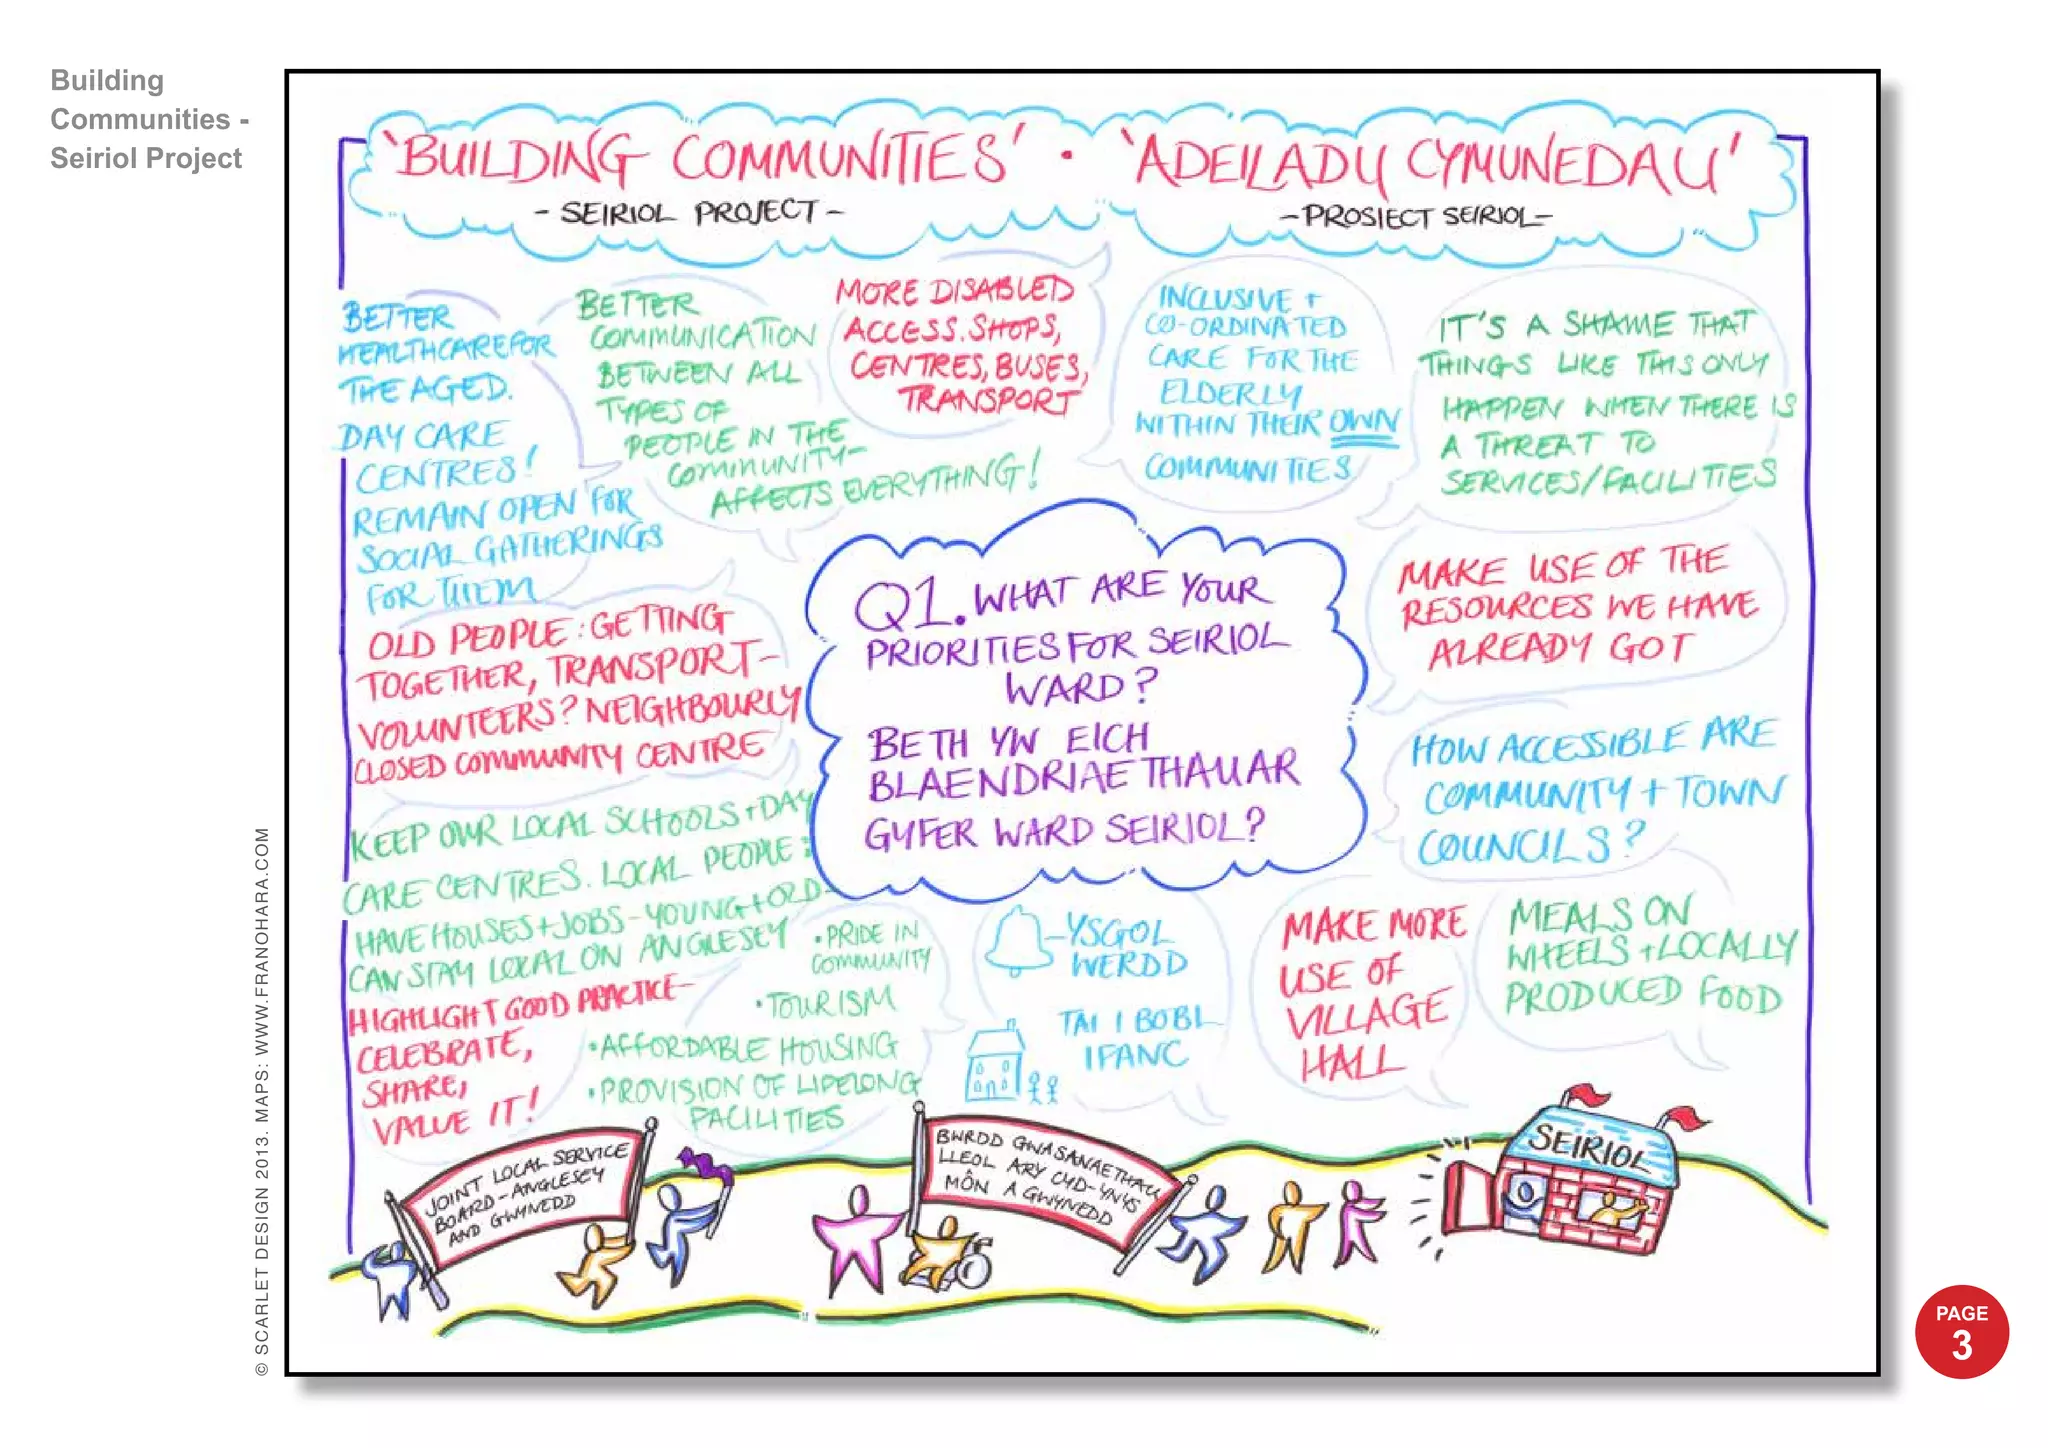 Building
Communities -
Seiriol Project
'BUILDING COMMUNITIES' • 'ADEILADU CYMUNEDAU'
- SEIRIOL PROJECT -
- PROSIECT SEIRIOL -
BETTER
HEALTHCARE FOR
THE AGED.
DAY CARE
CENTRES!
REMAIN OPEN FOR
SOCIAL GATHERINGS
FOR THEM
BETTER
COMMUNICATION
BETWEEN ALL
TYPES OF
PEOPLE IN THE
COMMUNITY-
AFFECTS EVERYTHING!
MORE DISABLED
ACCESS. SHOPS,
CENTRES, BUSES,
TRANSPORT
INCLUSIVE +
CO-ORDINATED
CARE FOR THE
ELDERLY
WITHIN THEIR OWN
COMMUNITIES
IT'S A SHAME THAT
THINGS LIKE THIS ONLY
HAPPEN WHEN THERE IS
A THREAT TO
SERVICES/FACILITIES
OLD PEOPLE: GETTING
TOGETHER, TRANSPORT-
VOLUNTEERS? NEIGHBOURLY
CLOSED COMMUNITY CENTRE
Q1. WHAT ARE YOUR
PRIORITIES FOR SEIRIOL
WARD?
BETH YW EICH
BLAENDRIAETHAUAR
GYFER WARD SEIRIOL?
MAKE USE OF THE
RESOURCES WE HAVE
ALREADY GOT
HOW ACCESSIBLE ARE
COMMUNITY + TOWN
COUNCILS?
KEEP OUR LOCAL SCHOOLS + DAY
CARE CENTRES. LOCAL PEOPLE:
HAVE HOUSES + JOBS - YOUNG + OLD-
CAN STAY LOCAL ON ANGLESEY
HIGHLIGHT GOOD PRACTICE-
CELEBRATE,
SHARE,
VALUE IT!
• PRIDE IN
COMMUNITY
• TOURISM
• AFFORDABLE HOUSING
• PROVISION OF LIFELONG
FACILITIES
YSGOL
WERDD
TAI I BOBL
IFANC
MAKE MORE
USE OF
VILLAGE
HALL
MEALS ON
WHEELS + LOCALLY
PRODUCED FOOD
JOINT LOCAL SERVICE
BOARD - ANGLESEY
AND GWYNEDD
BWRDD GWASANAETHAU
LLEOL AR Y CYD - YNYS
MÔN A GWYNEDD
SEIRIOL
© SCARLET DESIGN 2013. MAPS: WWW.FRANOHARA.COM
PAGE
3